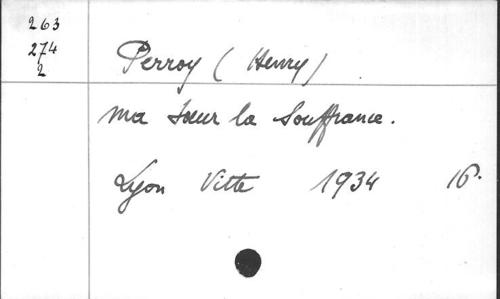 263
274
2
Perroy (Henry)
Ma Sœur la Souffrance.
Lyon Vitte 1934 16.